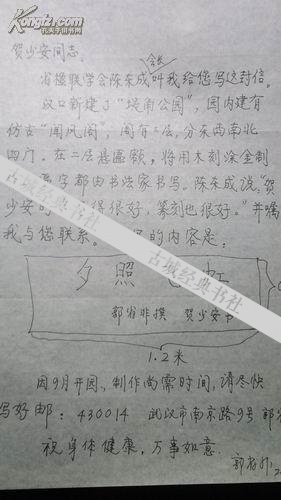 贺少安同志:
会长
省楹联学会陈东成叫我给您写这封信。
汉口新建了“堤角公园”,园内建有
仿古“闻凤阁”,阁有二层,分东西南北
四门。在二层悬匾额,将用木刻涂金制
字都由书法家书写。陈东成说,“贺
少安的 得很好,篆刻也很好。”并嘱
我与您联系。 的内容是:
夕照 虹
郭省非撰 贺少安书
1.2米
因9月开园,制作尚需时间,请尽快
写好邮:430014 武汉市南京路9号 郭省
祝身体健康,万事如意.
郭省非.2
古城经典书社
古城经典书社